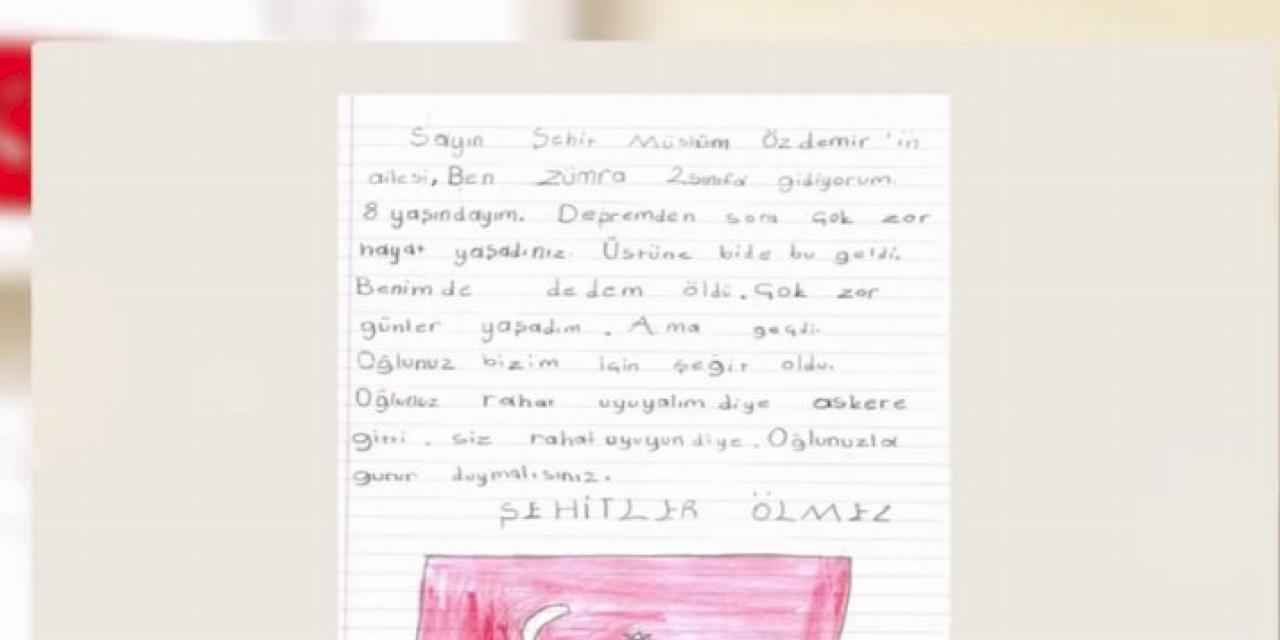 Sayın Şehir Müslüm Özdemir 'in
ailesi, Ben Zümra 2.sınıfa gidiyorum.
8 yaşındayım. Depremden sora çok zor
hayat yaşadınız. Üstüne bide bu geldi.
Benimde dedem öldü. Çok zor
günler yaşadım. Ama geçdi.
Oğlunuz bizim için şeğit oldu.
Oğlunuz rahat uyuyalım diye askere
gitti. siz rahat uyuyun diye. Oğlunuzla
gurur duymalısınız.
ŞEHİTLER ÖLMEZ